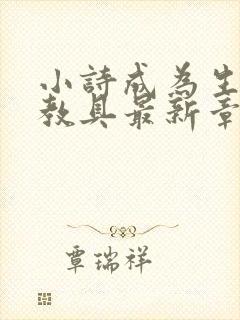 小詩成為生
教具最新章
覃瑞祥